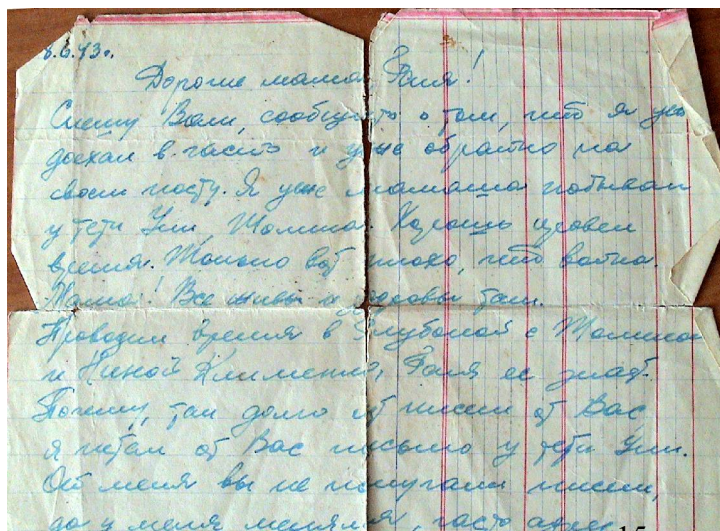 8.6.43г.
Дорогие мама Галя!
Спешу Вам, сообщить о том, что я уже
доехал в часть и уже обратно на
своем посту. Я уже мамаша побывал
у тети Ули, Томина. Хорошо провел
время. Только вот плохо, что война.
Мама! Все живы и здоровы там.
Проводил время в Глубокой с Томина
и Ниной Клименко, Галя ее знает.
Почему, так долго нет писем от Вас
я читал от Вас письмо у тети Ули.
От меня вы не получали писем,
да у меня менялся, часто адрес